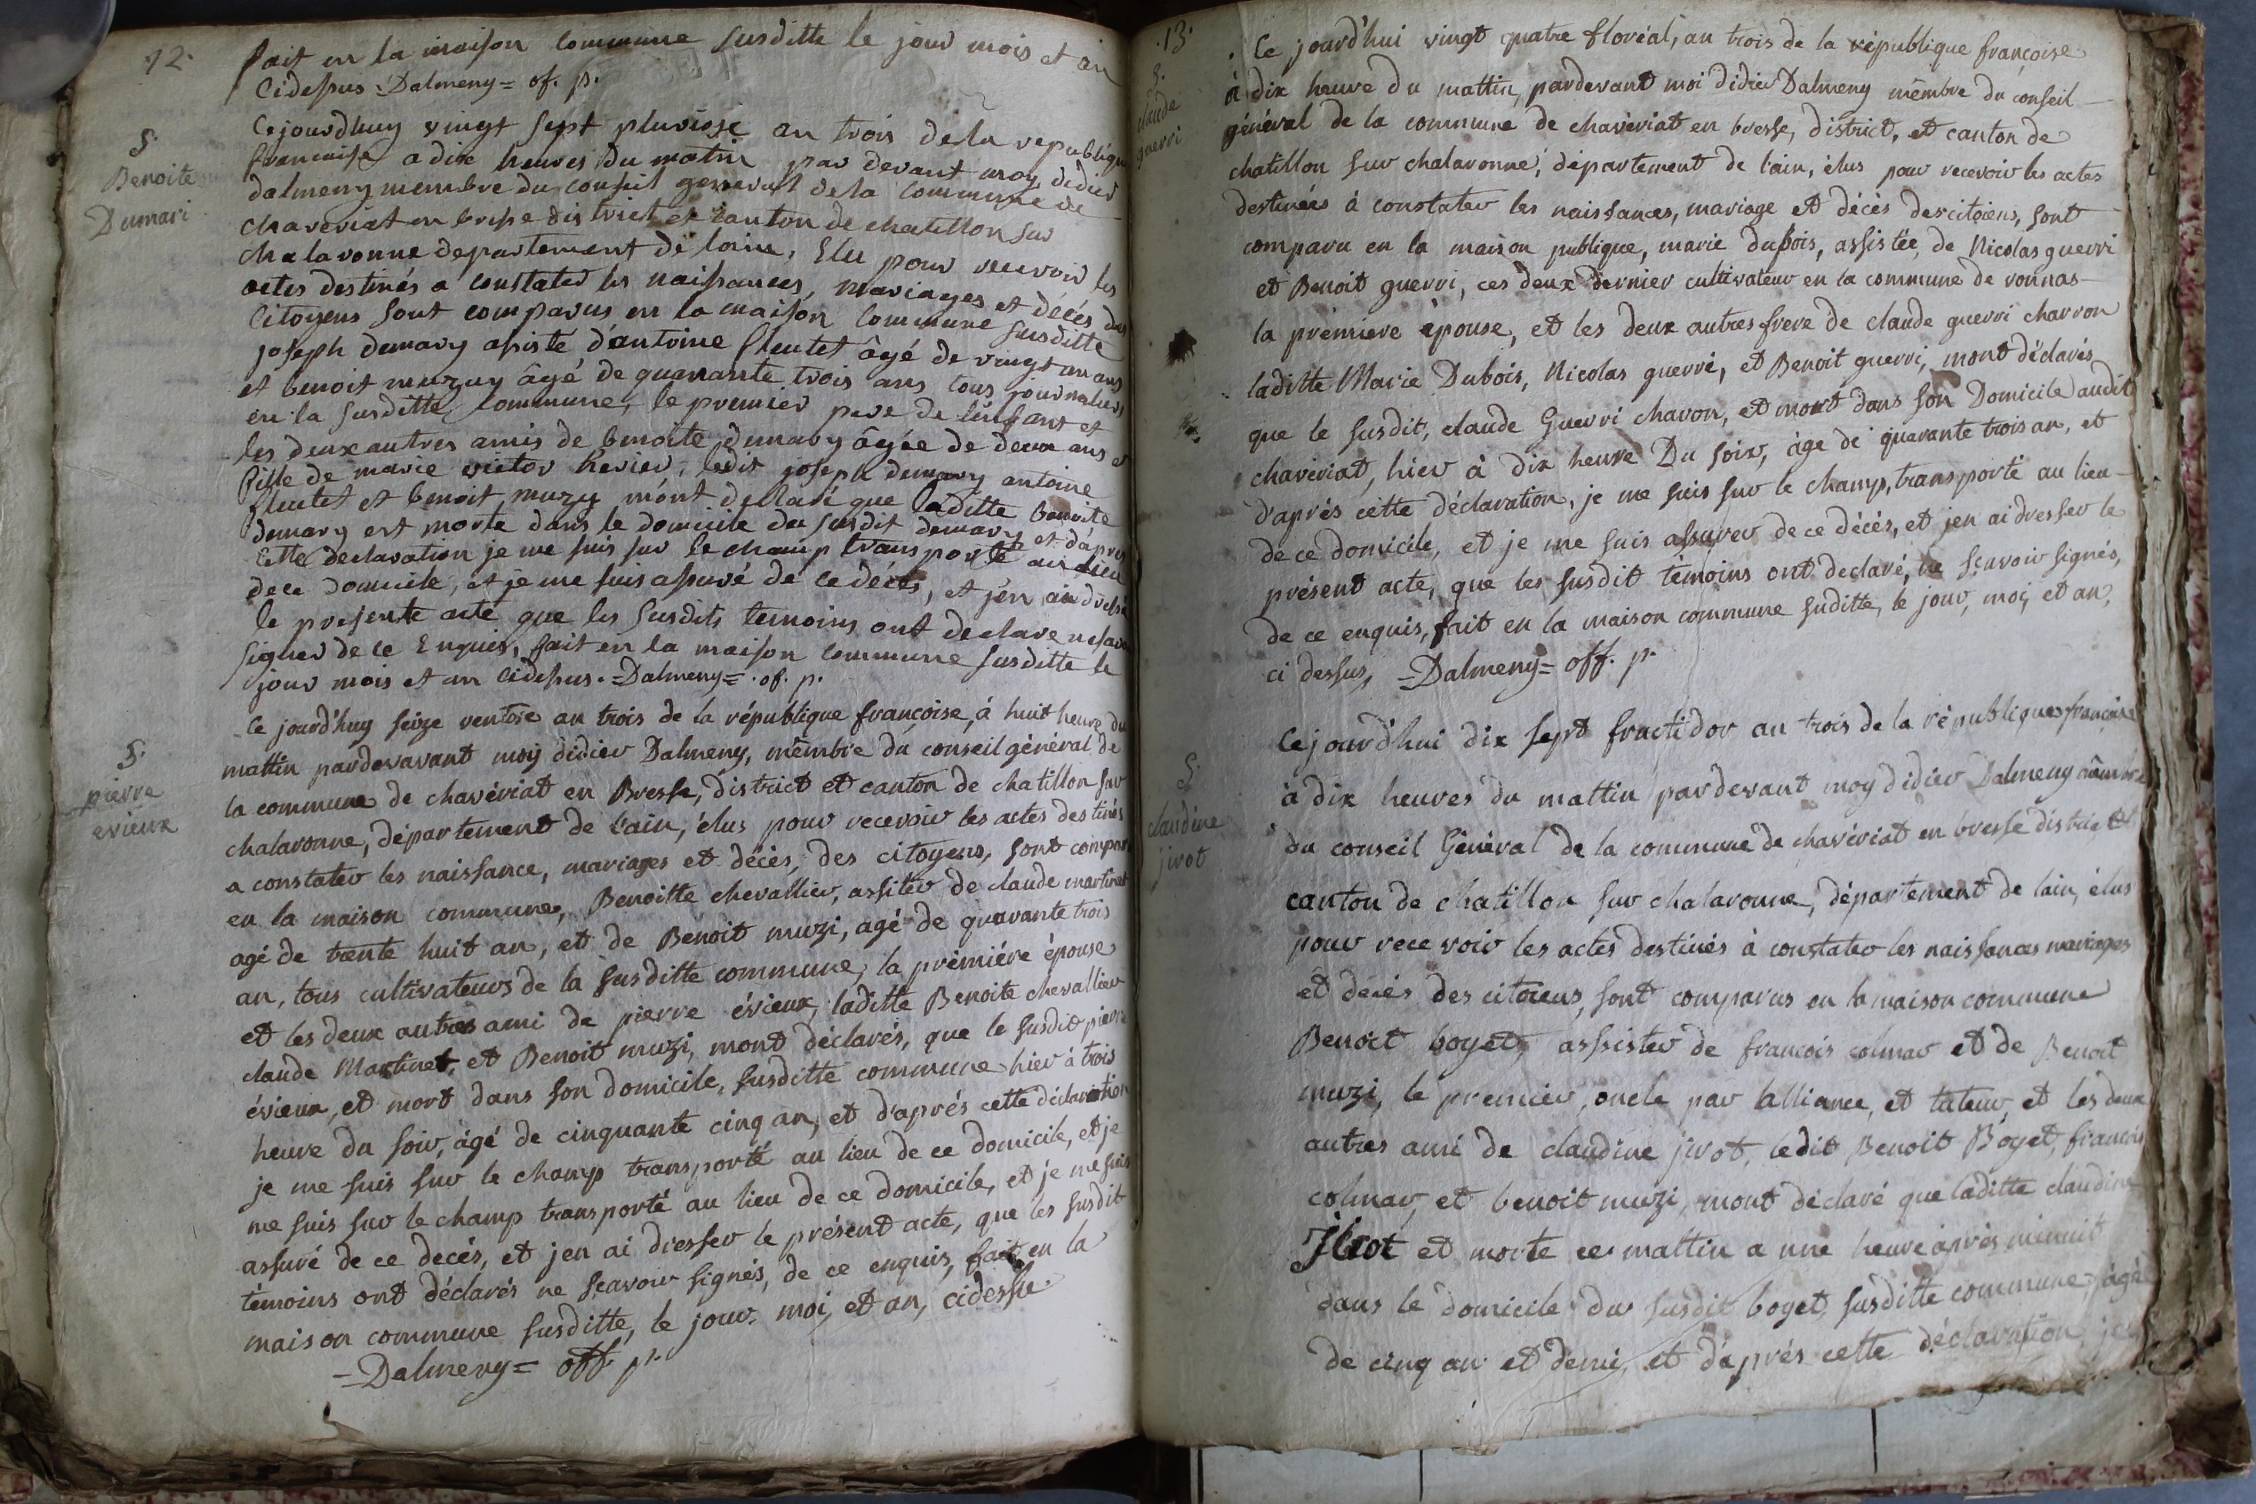 12.
fait en la maison Commune susditte le jour mois et an
Cidessus =Dalmeny= of. p.
S.
Benoite
Dumari
Cejourdhuy vingt sept pluviose an trois de la republique
francaise a dix heures du matin par devant moy didier
dalmeny membre du conseil general de la commune de
chaveriat en bresse district et canton de chatillon sur
chalaronne departement de lain, Elu pour recevoir les
actes destinés a constater les naissances, mariages et décés des
Citoyens sont comparus en la maison Commune susditte
joseph dumary assisté d'antoine fleutet âgé de vingt un ans
et benoit muzuy âgé de quarante trois ans tous journaliers
en la susditte Commune, le premier pere de l'enfant et
les deux autres amis de benoite dumary âgée de deux ans et
fille de marie victor hevier, ledit joseph dumary antoine
fleutet et benoit muzy m'ont declaré que laditte benoite
dumary est morte dans le domicile du susdit dumary et d'apres
cette declaration je me suis sur le champ transporté au lieu
de ce domicile, et je me suis assuré de ce décés, et j'en ai dressé
le presente acte que les susdits temoins ont declare ne savoir
signer de ce Enquis, fait en la maison commune susditte le
jour mois et an cidessus. =Dalmeny= . of. p.
S.
pierre
evieux
Ce jourd'huy seize ventose an trois de la république françoise, à huit heure du
mattin pardevavant moy didier Dalmeny, mêmbre du conseil général de
la commune de chavériat en Bresse, district et canton de chatillon sur
chalaronne, département de l'ain, élus pour recevoir les actes destinés
a constater les naissance, mariages et décès, des citoyens, sont comparu
en la maison commune, Benoitte chevallier, assiter de claude martinet
agé de trente huit an, et de Benoit muzi, agé de quarante trois
an, tous cultivateurs de la susditte commune, la prémiére épouse
et les deux autres ami de pierre évieux, laditte Benoite chevallier
claude Martinet, et Benoit muzi, mont déclarés, que le susdit pierre
évieux, et mort dans son domicile, susditte commune hier à trois
heure du soir, âgé de cinquante cinq an, et d'aprés cette déclaration
je me suis sur le champ transporté au lieu de ce domicile, et je
me suis sur le champ transporté au lieu de ce domicile, et je me suis
assuré de ce decés, et jen ai dresser le présent acte, que les susdit
témoins ont déclarés ne scavoir signés, de ce enquis, fait en la
maison commune susditte, le jour, moi, et an, cidessu.
=Dalmeny= off. p.
.13.
S.
claude
guerri
Ce jourd'hui vingt quatre floréal, an trois de la république françoise
à dix heure du mattin, pardevant moi didier Dalmeny mêmbre du conseil
général de la commune de chavériat en bresse, district, et canton de
chatillon sur chalaronne, département de l'ain, élus pour recevoir les actes
destinées à constater les naissances, mariage et décès des citoiens, sont
comparu en la maison publique, marie dubois, assistée, de Nicolas guerri
et Benoit guerri, ces deux dernier cultivateur en la commune de vonnas
la prémiere épouse, et les deux autres frere de claude guerri charron
laditte Marie Dubois, Nicolas guerri, et Benoit guerri, mont déclarés,
que le susdit, claude Guerri chavon, et mort dans son Domicile audit
chavériat, hier à dix heure Du soir, âge de quarante trois an, et
d'aprés cette déclaration, je me suis sur le champ, transporté au lieu
de ce domicile, et je me suis assurer de ce décés, et jen ai dresser le
présent acte, que les susdit témoins ont declaré, ne sçavoir signés,
de ce enquis, fait en la maison commune suditte, le jour, moi, et an,
ci dessus, =Dalmeny= off. p.
S.
claudine
jivot
Cejourd'hui dix sept fructidor an trois de la république françoise
à dix heures du mattin pardevant moy didier Dalmeny membre
du conseil Général de la commune de chavériat en bresse district
canton de chatillon sur chalaronne, département de lain, élus
pour recevoir les actes destinés à constater les naissances mariages
et décés des citoiens, sont comparus en la maison commune
Benoit boyet, assister de francois colmar et de Benoit
muzi, le premier, oncle par lalliance, et tuteur, et les deux
autres ami de claudine jivot, ledit Benoit Boyet, francois
colmar, et benoit muzi, mont déclaré que laditte claudine
Jivot et morte ce mattin a une heure après minuit
dans le domicile du susdit boyet, susditte commune, âgé
de cinq an et demi, et d'aprés cette déclaration je